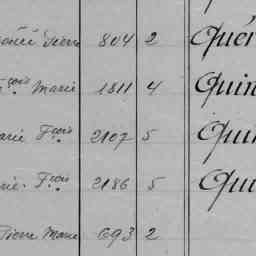 Pierre 804 2 Quér
çois Marie 1811 4 Quin
arie Fçois 2107 5 Qui
rie. Fçois 2186 5 Qui
Pierre Marie 693 2